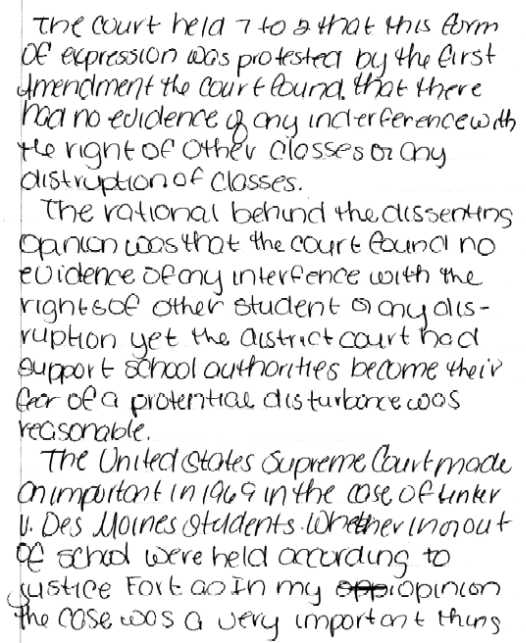 The court held 7 to 2 that this form
of expression was protested by the first
Amendment the court found. that there
had no evidence of any inderference with
the right of other classes or any
distruption of classes.
The rational behind the dissenting
opanion was that the court found no
evidence of any interfence with the
rights of other student or any dis-
ruption yet the district court had
support school authorities become their
fear of a protential disturbance was
reasonable.
The United States Supreme Court made
an important in 1969 in the case of tinker
v. Des Moines students. Whether in or out
of school were held according to
justice Fortas In my opinion
the case was a very important thing